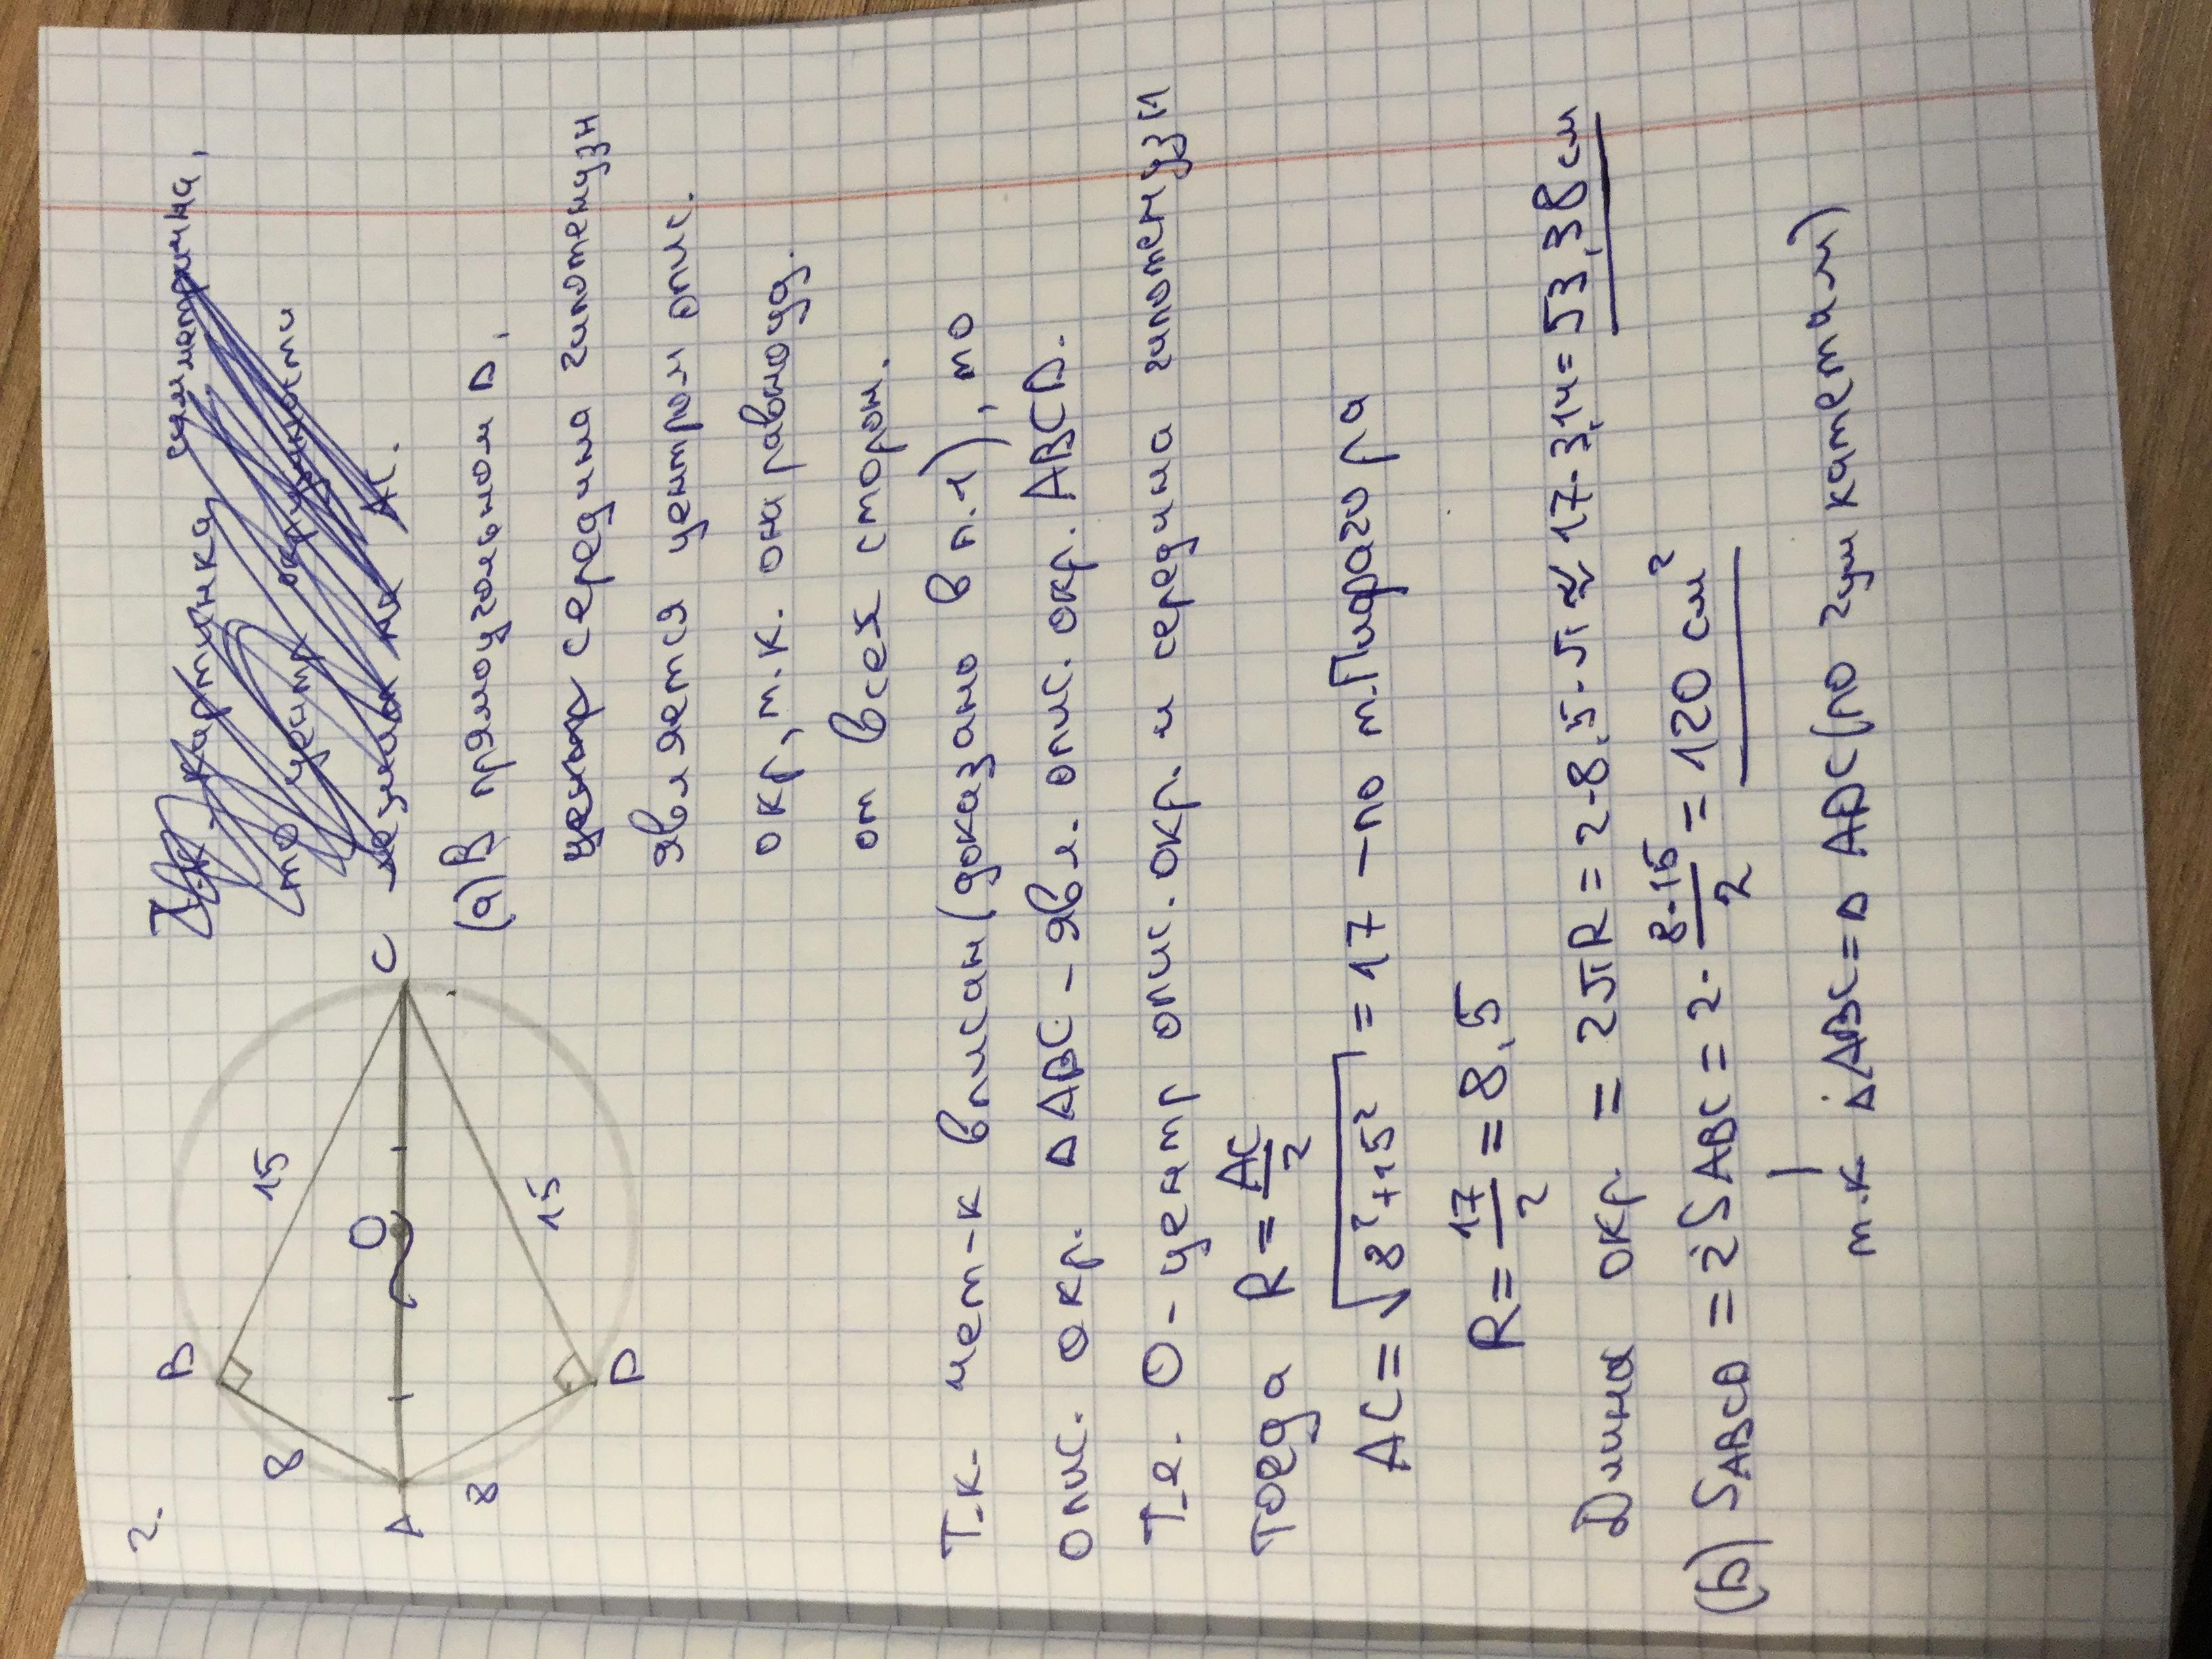 2.
B
C
A
D
O
8
15
8
15
Т.к. картинка симметрична,
то центр окружности
лежит на AC.
(a) В прямоугольном Δ,
центр середина гипотенузы
является центром опис.
окр, т.к. она равноуд.
от всех сторон.
Т.к. чет-к вписан (доказано в п.1), то
опис. окр. Δ ABC - явл. опис. окр. ABCD.
Т.е. O - центр опис. окр. и середина гипотенузы
Тогда R = AC/2
AC = √(8² + 15²) = 17 - по т. Пифагора
R = 17/2 = 8,5
Длина окр. = 2πR = 2·8,5·π ≈ 17·3,14 = 53,38 см
(b) SABCD = 2SABC = 2 · 8·15/2 = 120 см²
т.к ΔABC = Δ ADC (по 2ум катетам)